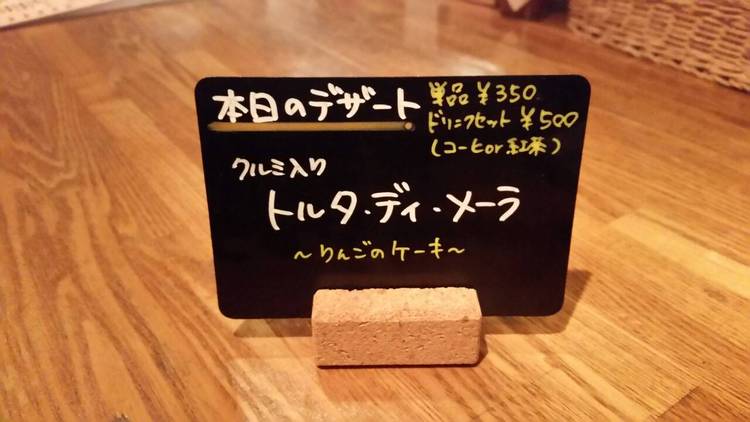 本日のデザート
単品 ¥350
ドリンクセット ¥500
(コーヒor紅茶)
クルミ入り
トルタ・ディ・メーラ
~りんごのケーキ~